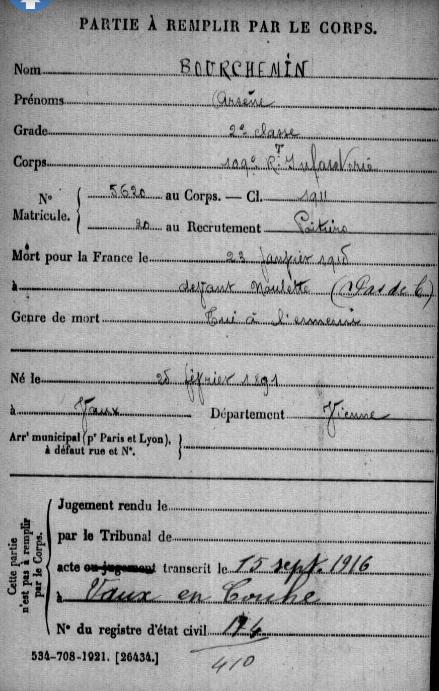 PARTIE À REMPLIR PAR LE CORPS.
Nom BOURCHENIN
Prénoms Arsène
Grade 2e classe
Corps 109e Rt Infanterie
No Matricule. 5620 au Corps. — Cl. 1911
20 au Recrutement Poitiers
Mort pour la France le 23 janvier 1915
à devant Noulette (Pas de C)
Genre de mort Tué à l'ennemi
Né le 25 février 1891
à Vaux Département Vienne
Arrt municipal (pr Paris et Lyon),
à défaut rue et No.
Cette partie n'est pas à remplir par le Corps.
Jugement rendu le
par le Tribunal de
acte ou jugement transcrit le 15 sept. 1916
à Vaux en Couhé
No du registre d'état civil
534-708-1921. [26434.]
410